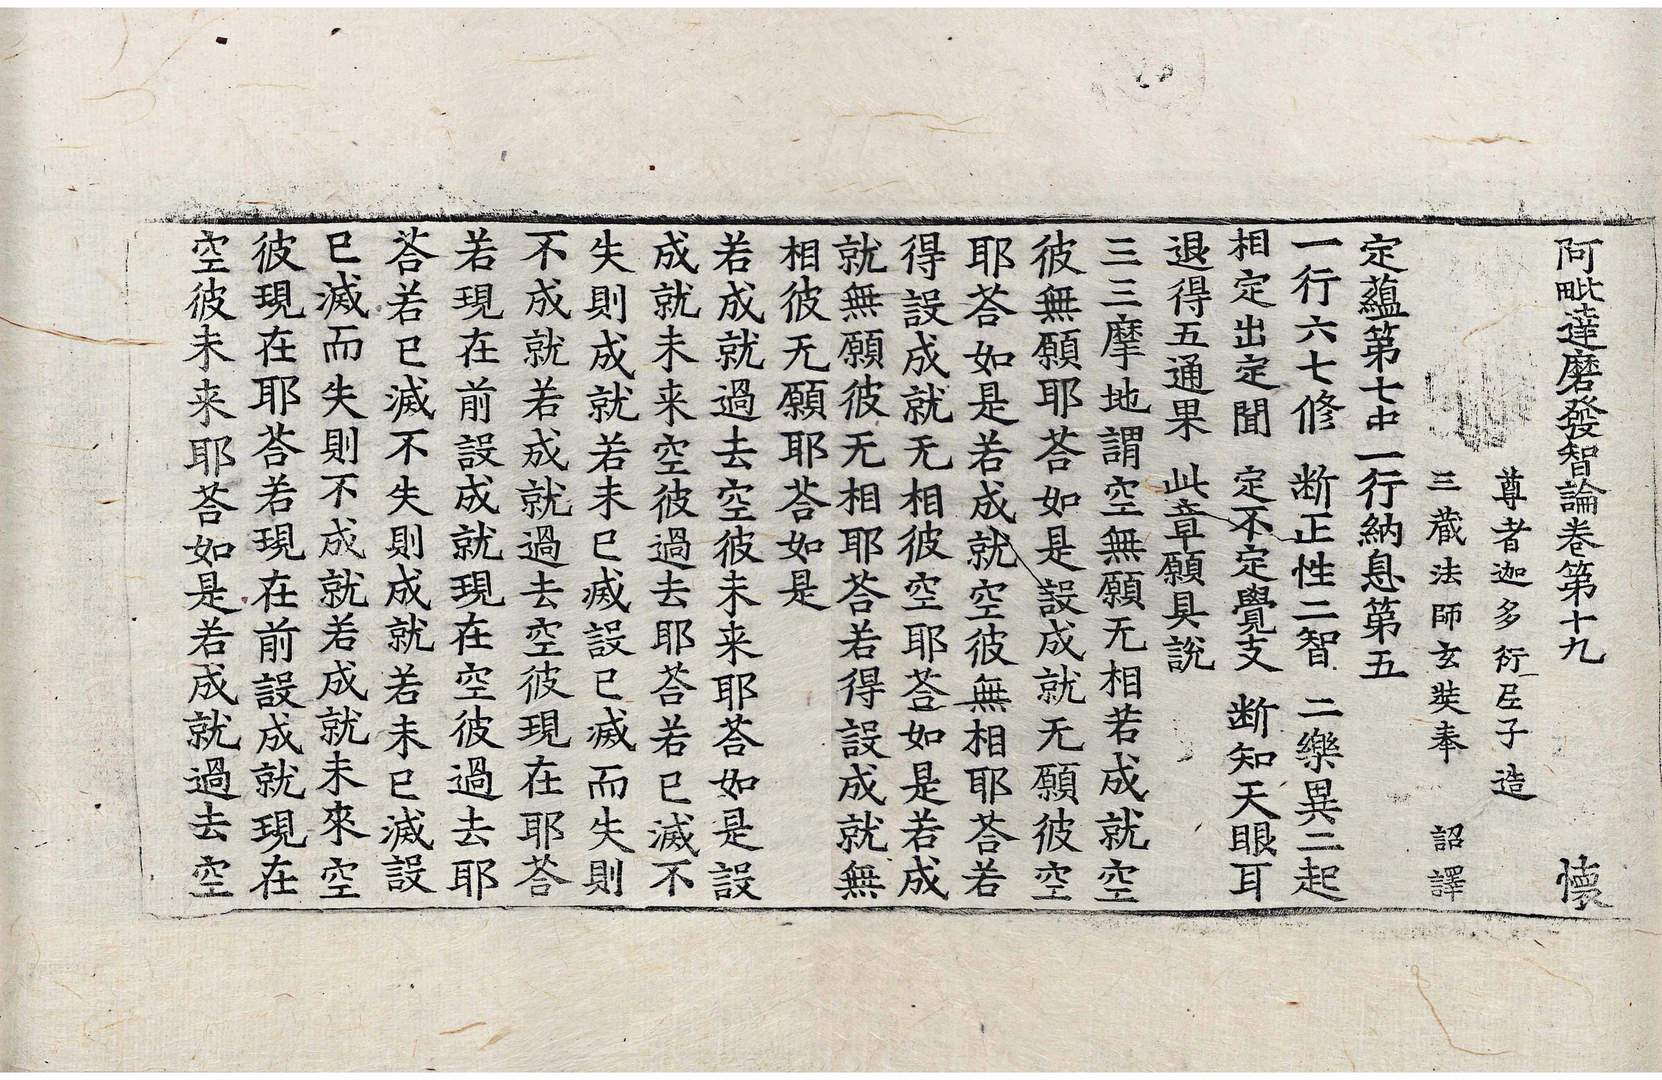 阿毗達磨發智論卷第十九 懷
尊者迦多衍尼子造
三藏法師玄奘奉 詔譯
定蘊第七中一行納息第五
一行六七修 断正性二智 二樂異二起
相定出定聞 定不定覺支 断知天眼耳
退得五通果 此章願具說
三三摩地謂空無願无相若成就空
彼無願耶荅如是設成就无願彼空
耶荅如是若成就空彼無相耶荅若
得設成就无相彼空耶荅如是若成
就無願彼无相耶荅若得設成就無
相彼无願耶荅如是
若成就過去空彼未来耶荅如是設
成就未来空彼過去耶荅若已滅不
失則成就若未已滅設已滅而失則
不成就若成就過去空彼現在耶荅
若現在前設成就現在空彼過去耶
荅若已滅不失則成就若未已滅設
已滅而失則不成就若成就未來空
彼現在耶荅若現在前設成就現在
空彼未来耶荅如是若成就過去空